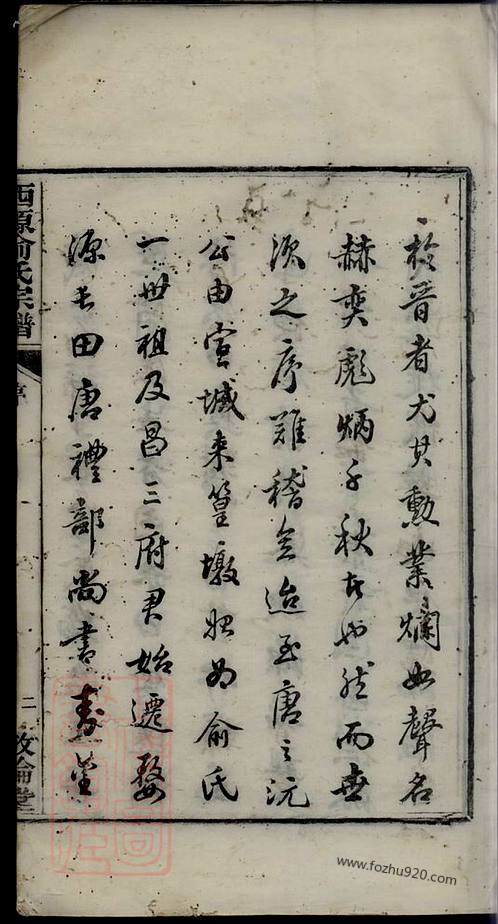 於晉者尤其勳業爛如聲名
赫奕彪炳千秋者也然而世
次之序難稽矣迨至唐之沅
公由宣城来篁墩始為俞氏
一世祖及昌三府君始遷婺
源長田唐禮部尚書壽皇
西源俞氏宗譜
序
二
敦倫堂
www.fozhu920.com